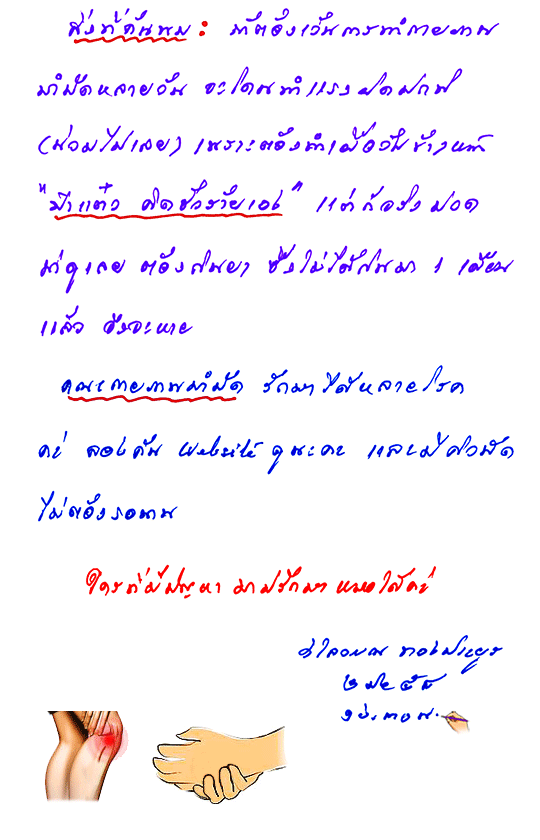 สิ่งที่ค้นพบ : ถ้าต้องเว้นการทำกายภาพ
บำบัดหลายวัน จะโดนทำแรงผิดปกติ
(น่วมไปเลย) เพราะต้องทำเผื่อวันข้างหน้า
" ป้าแต๋ว คิดชั่วร้ายเอง " แต่ก็จริง ปวด
น่าดูเลย ต้องกินยา ซึ่งไม่ได้กินมา 1 เดือน
แล้ว จึงจะหาย
คณะกายภาพบำบัด รักษาได้หลายโรค
ค่ะ ลองค้น website ดูนะคะ และมีคิวนัด
ไม่ต้องรอนาน
ใครที่มีปัญหา มาปรึกษา หมอได้ค่ะ